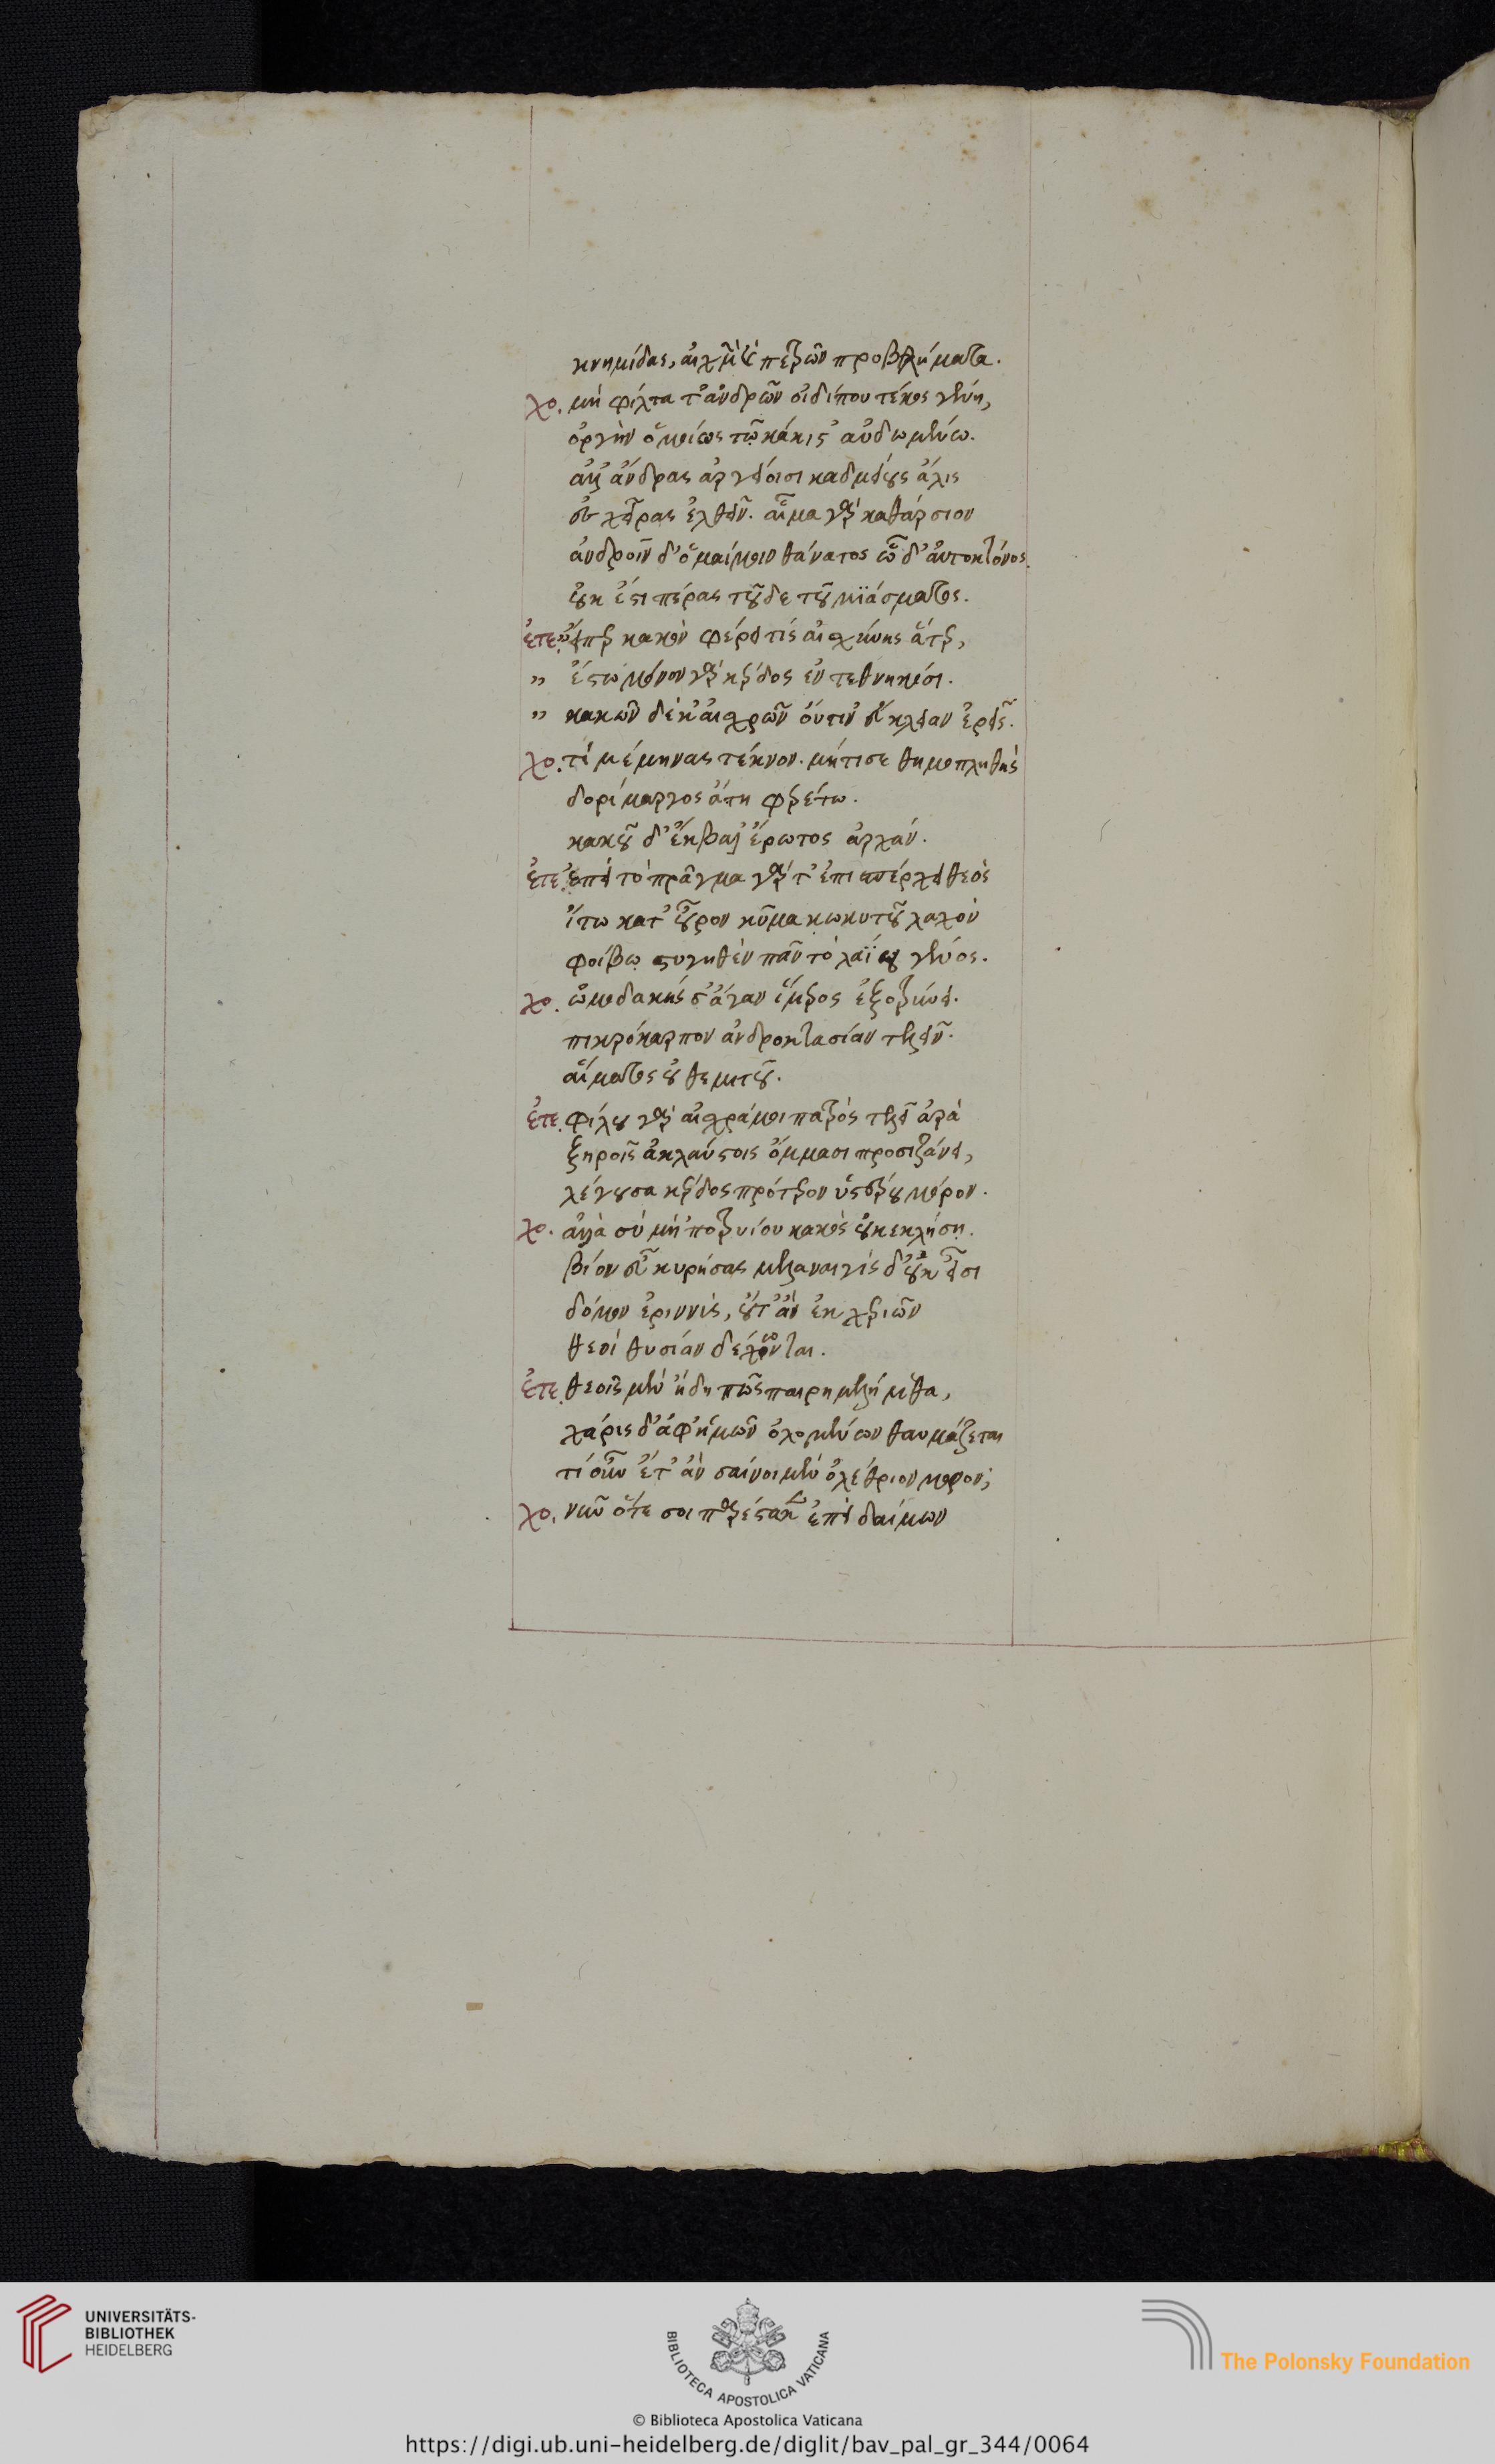 κνημίδας, αἰχμῆς καὶ πετρῶν προβλήματα.
χο. μὴ φίλτατ' ἀνδρῶν οἰδίπου τέκος γένη,
ὀργὴν ὁμοίως τῷ κάκιστ' αὐδωμένῳ.
ἀλλ' ἄνδρας ἀργείοισι καδμείους ἅλις
ἐς χεῖρας ἐλθεῖν. αἷμα γὰρ καθάρσιον
ἀνδροῖν δ' ὁμαίμοιν θάνατος ὧδ' αὐτοκτόνος.
οὐκ ἔστι πέρας τοῦδε τοῦ μϊάσματος.
ἐτε. εἴπερ κακὸν φέρει τίς αἰσχύνης ἄτερ,
" ἔστω μόνον γὰρ κέρδος ἐν τεθνηκόσι.
" κακῶν δὲ κ' αἰσχρῶν οὔτιν' εὔκλειαν ἐρεῖς.
χο. τί μέμηνας τέκνον. μήτισε θυμοπληθὴς
δορίμαργος ἄτη φερέτω.
κακοῦ δ' ἔκβαλ' ἔρωτος ἀρχάν.
ἐτε. ἐπεὶ τὸ πρᾶγμα γὰρ τ' ἐπισπέρχει θεὸς
ἴτω κατ' οὖρον κῦμα κωκυτοῦ λαχὸν
φοίβῳ στυγηθὲν πᾶν τὸ λαΐου γένος.
χο. ὠμοδακής σ' ἄγαν ἵμερος ἐξοτρύνει.
πικρόκαρπον ἀνδροκτασίαν τελεῖν.
αἵματος οὐ θεμιτοῦ.
ἐτε. φίλου γὰρ αἰσχρά μοι πατρὸς τελεῖ ἀρὰ
ξηροῖς ἀκλαύστοις ὄμμασι προσιζάνει,
λέγουσα κέρδος πρότερον ὑστέρου μόρου.
χο. ἀλλὰ σὺ μὴ 'ποτρύνου κακὸς οὐ κεκλήσῃ.
βίον εὖ κυρήσας μελαναιγὶς δ' οὐκ εἶσι
δόμον ἐριννὺς, οὔτ' ἂν ἐκ χεριῶν
θεοὶ θυσίαν δέχωνται.
ἐτε. θεοῖς μὲν ἤδη πῶς παρημελήμεθα,
χάρις δ' ἀφ' ἡμῶν ὀλομένων θαυμάζεται
τί οὖν ἔτ' ἂν σαίνοιμεν ὀλέθριον μόρον;
χο. νῦν ὅτε σοι παρέστακεν ἐπεὶ δαίμων
UNIVERSITÄTS-
BIBLIOTHEK
HEIDELBERG
BIBLIOTECA APOSTOLICA VATICANA
The Polonsky Foundation
© Biblioteca Apostolica Vaticana
https://digi.ub.uni-heidelberg.de/diglit/bav_pal_gr_344/0064